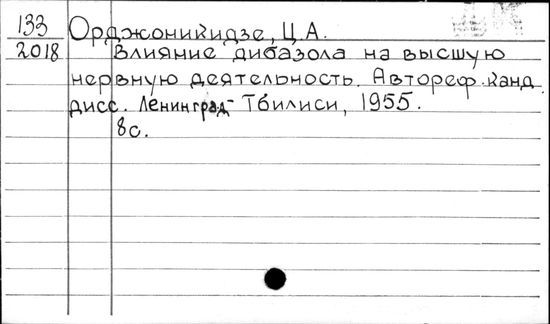 133 Орджоникидзе, Ц.А.
2018 Влияние дибазола на высшую
нервную деятельность. Автореф. канд.
дисс. Ленинград-Тбилиси, 1955.
8с.